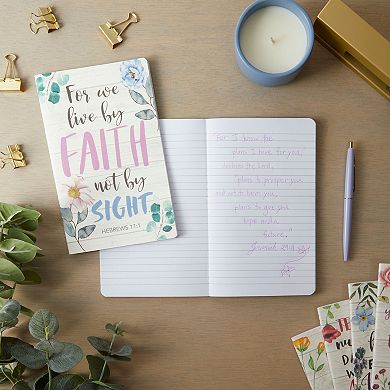 For we
live by
FAITH
not by
SIGHT.
HEBREWS 11:1
"For I know the
plans I have for you,
declares the Lord,
"plans to prosper you
and not to harm you,
plans to give you
hope and a
future."
Jeremiah 29:11